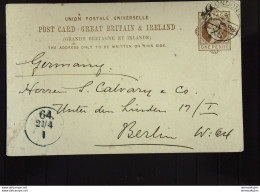 UNION POSTALE UNIVERSELLE
POST CARD-GREAT BRITAIN & IRELAND
(GRANDE BRETAGNE ET IRLANDE)
THE ADDRESS ONLY TO BE WRITTEN ON THIS SIDE.
LONDON
ONE PENNY
Germany.
Herren S. Calvary & Co.
Unter den Linden 17/I
Berlin W: 64
64.
21/4
1